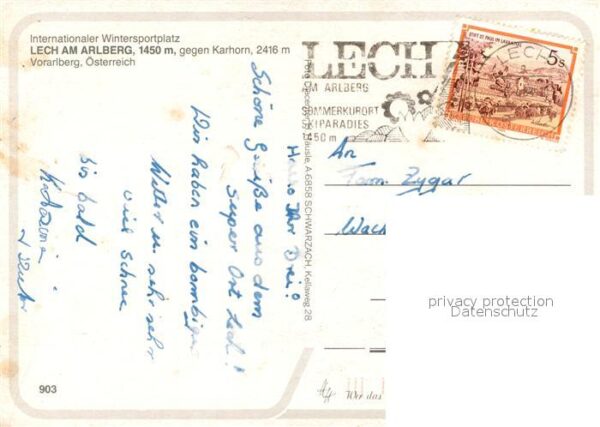 Internationaler Wintersportplatz
LECH AM ARLBERG, 1450 m, gegen Karhorn, 2416 m
Vorarlberg, Österreich
Hallo Ihr Drei!
Schöne Grüße aus dem
super Ort Lech!
Wir haben ein bombiges
Wetter u. sehr sehr
viel Schnee
bis bald
Katharina
903
Hausle, A-6858 SCHWARZACH, Kellaweg 28
LECH
AM ARLBERG
SOMMERKURORT
SKIPARADIES
1450 m
STIFT ST. PAUL IM LAVANTTAL
5s
REPUBLIK ÖSTERREICH
LECH
An
Fam. Zygar
privacy protection
Datenschutz
Wer das